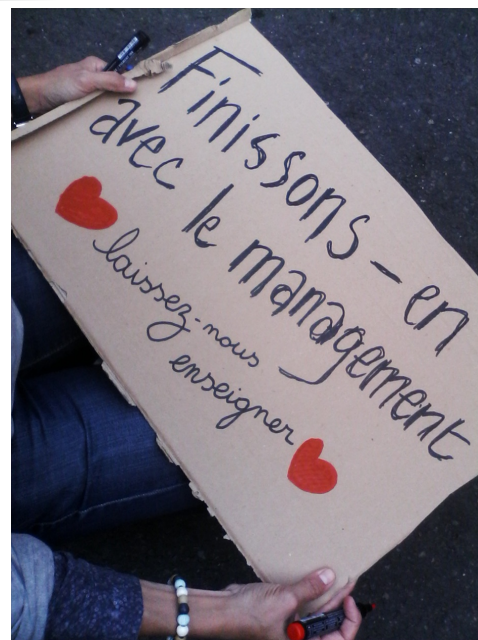 Finissons-en
avec le management
laissez-nous
enseigner